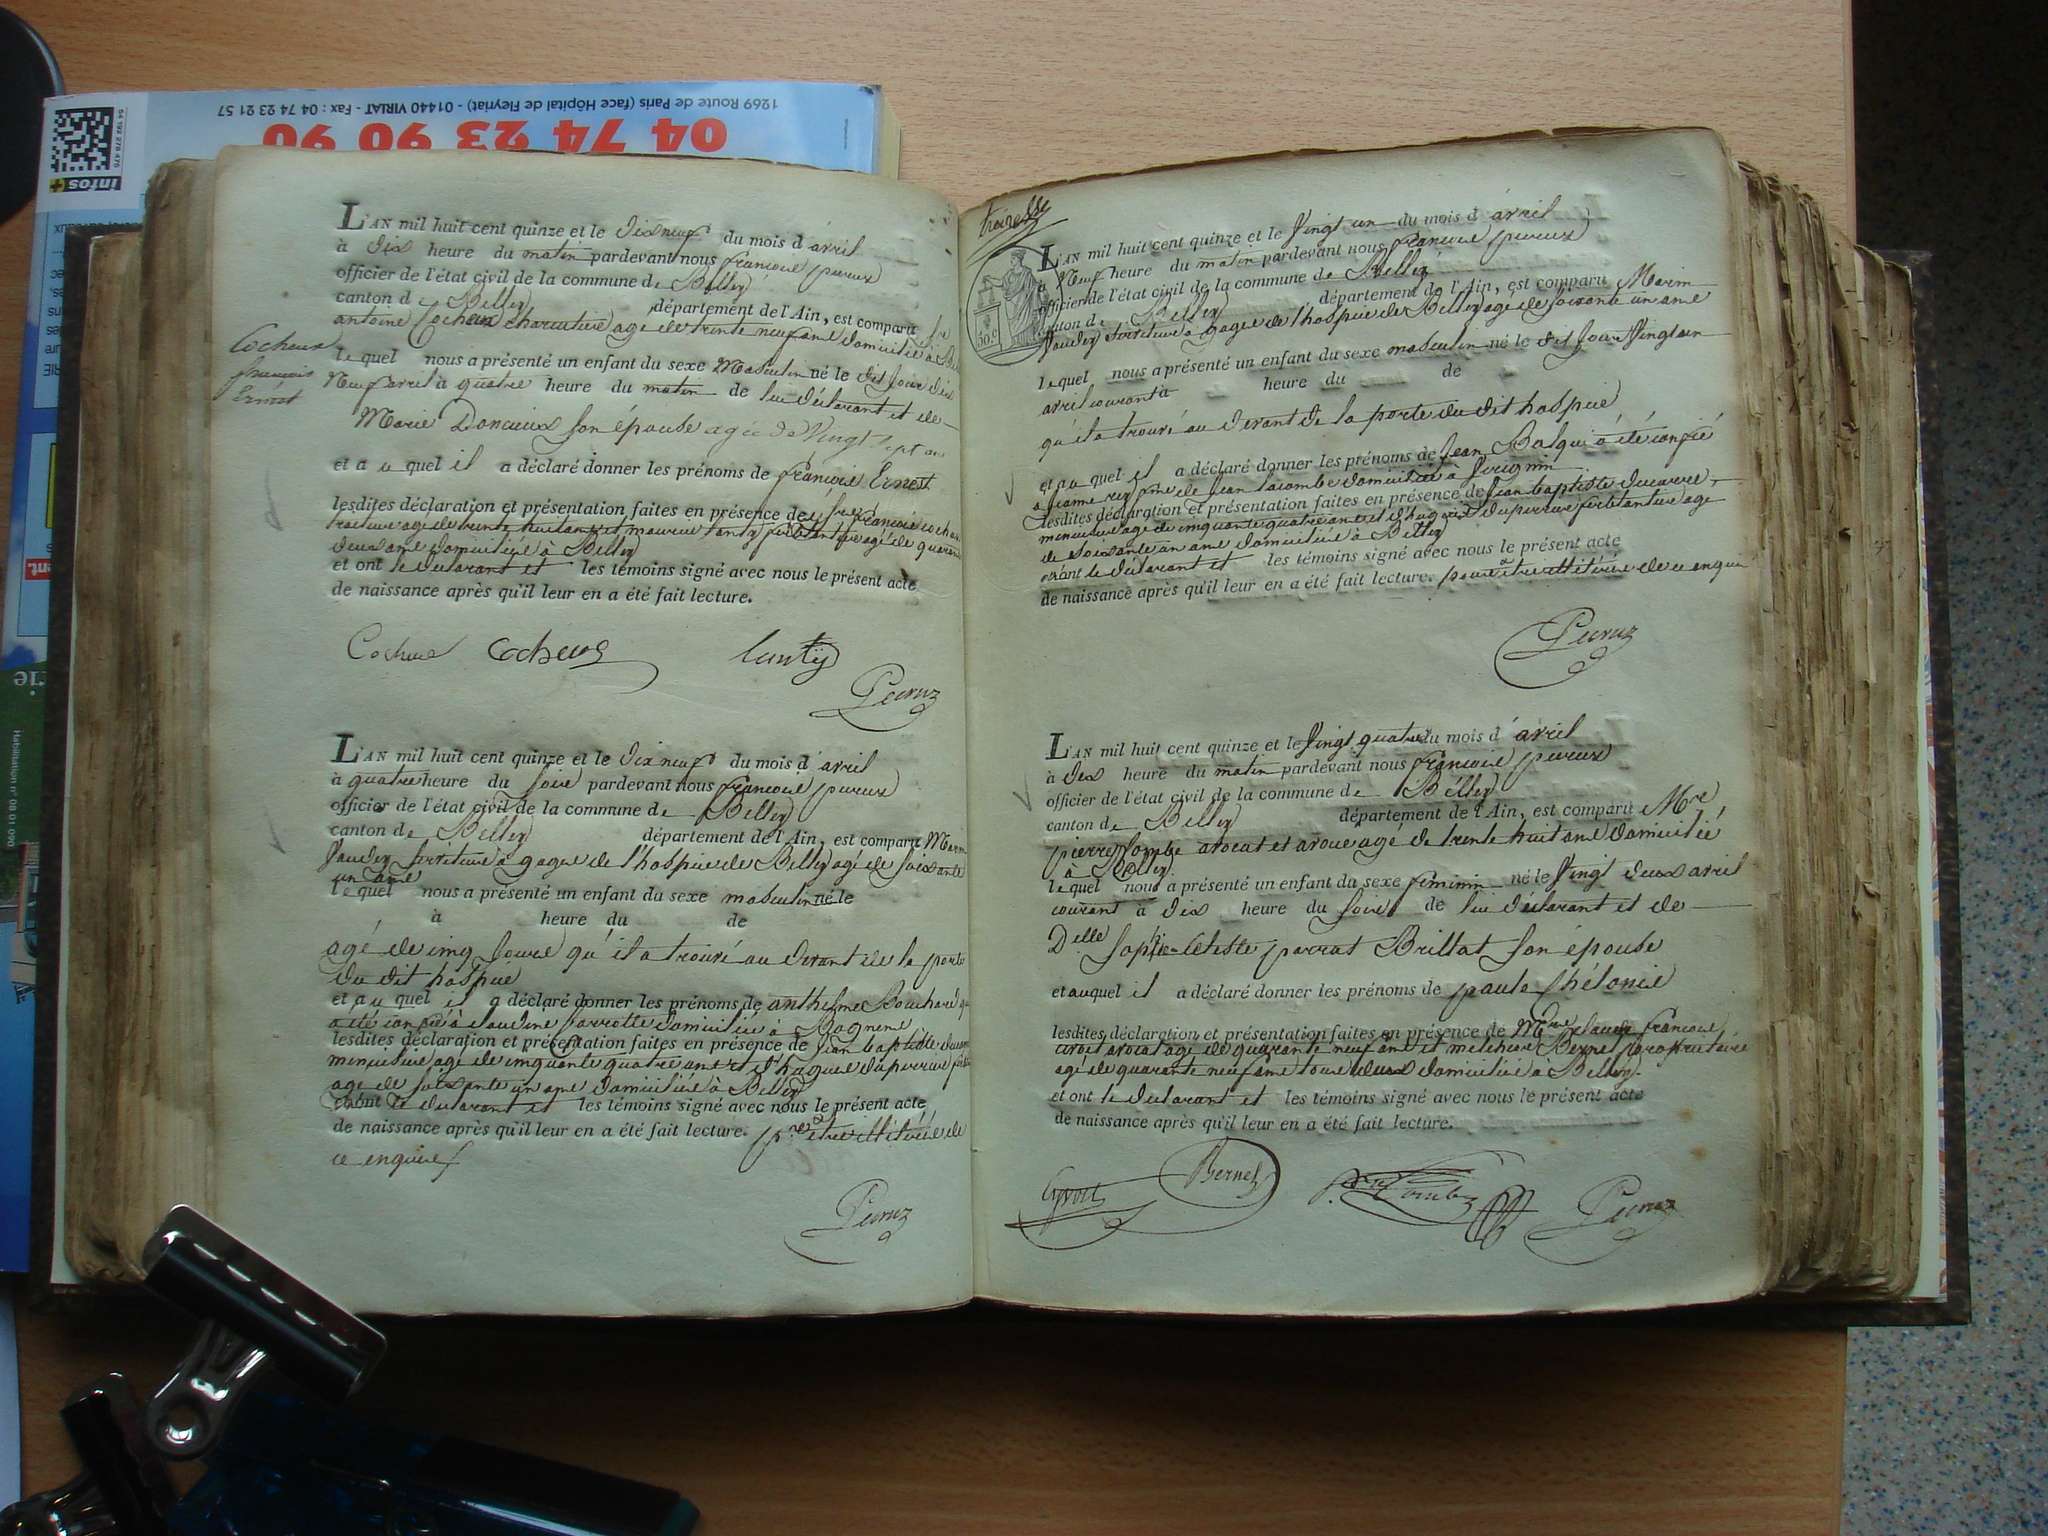 1269 Route de Paris (face Hôpital de Fleyriat) - 01440 VIRIAT - Fax : 04 74 23 21 57
04 74 23 90 90
infos+
L'AN mil huit cent quinze et le dixneuf du mois d'avril
à dix heure du matin pardevant nous françois
officier de l'état civil de la commune de Belley
canton de Belley département de l'Ain, est comparu
antoine Cocheux age de trente neuf ans domicilié à
Cocheux
françois
Ernest
lequel nous a présenté un enfant du sexe Masculin né le dit jour dix
Neuf avril à quatre heure du matin de lui déclarant et de
Marie Doncieux son épouse agée de Vingt sept ans
et au quel il a déclaré donner les prénoms de françois Ernest
lesdites déclaration et présentation faites en présence de françois
age de trente huit ans et agé de quarante
deux ans domiciliés à Belley
et ont le déclarant et les témoins signé avec nous le présent acte
de naissance après qu'il leur en a été fait lecture.
Cocheux Cocheux Lantÿ
L'AN mil huit cent quinze et le dixneuf du mois d'avril
à quatre heure du soir pardevant nous françois
officier de l'état civil de la commune de Belley
canton de Belley département de l'Ain, est comparu Marin
à gages de l'hospice de Belley agé de soixante
un ans
lequel nous a présenté un enfant du sexe masculin né le
à heure du de
agé de cinq jours qu'il a trouvé au devant de la porte
du dit hospice
et au quel il a déclaré donner les prénoms de anthelme Bouchard qui
a été confié à claudine domiciliée à
lesdites déclaration et présentation faites en présence de jean baptiste
menuisier age de cinquante quatre ans et d'hugues
age de soixante un ans domiciliés à Belley
et ont le déclarant et les témoins signé avec nous le présent acte
de naissance après qu'il leur en a été fait lecture. être illitéré de
ce enquis
treize
30.c
L'AN mil huit cent quinze et le Vingt un du mois d'avril
à Neuf heure du matin pardevant nous françois
officier de l'état civil de la commune de Belley
canton de Belley département de l'Ain, est comparu Marin
à gages de l'hospice de Belley agé de soixante un ans
lequel nous a présenté un enfant du sexe masculin né le dit jour Vingt un
avril courant à heure du de
qu'il a trouvé au devant de la porte du dit hospice
et au quel il a déclaré donner les prénoms de Jean qui a été confié
à jeanne rey fme de Jean lacombe domicilié à
lesdites déclaration et présentation faites en présence de Jean baptiste
menuisier age de cinquante quatre ans et d'hugues age
de soixante un ans domiciliés à Belley
et ont le déclarant et les témoins signé avec nous le présent acte
de naissance après qu'il leur en a été fait lecture. pour être illitéré de ce enquis
L'AN mil huit cent quinze et le Vingt quatre du mois d'avril
à dix heure du matin pardevant nous françois
officier de l'état civil de la commune de Belley
canton de Belley département de l'Ain, est comparu Mre
pierre avocat et avoué agé de trente huit ans domicilié
à Belley
lequel nous a présenté un enfant du sexe feminin né le Vingt deux avril
courant à dix heure du soir de lui déclarant et de
Delle Sophie Celeste parrat Brillat son épouse
et auquel il a déclaré donner les prénoms de paule
lesdites déclaration et présentation faites en présence de Mre claude françois
avocat agé de quarante neuf ans et melchior Bernel propriétaire
agé de quarante neuf ans tous deux domiciliés à Belley.
et ont le déclarant et les témoins signé avec nous le présent acte
de naissance après qu'il leur en a été fait lecture.
Bernel